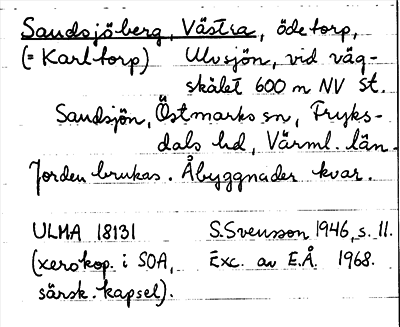 Sandsjöberg, Västra, ödetorp,
(= Karltorp) Ulvsjön, vid väg-
skälet 600 m NV St.
Sandsjön, Östmarks sn, Fryks-
dals hd, Värml. län.
Jorden brukas. Åbyggnader kvar.
ULMA 18131 S. Svensson 1946, s. 11.
(xerokop. i SOA, Exc. av E.Å. 1968.
särsk. kapsel).